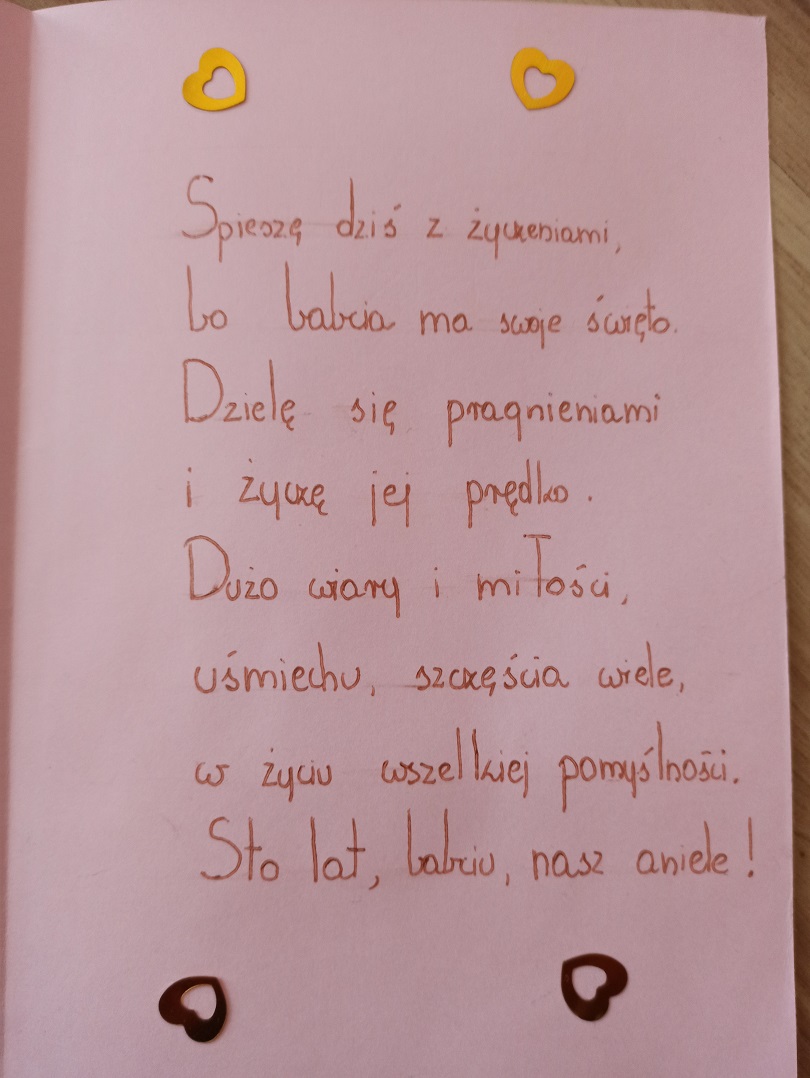 Spieszę dziś z życzeniami,
bo babcia ma swoje święto.
Dzielę się pragnieniami
i życzę jej prędko.
Dużo wiary i miłości,
uśmiechu, szczęścia wiele,
w życiu wszelkiej pomyślności.
Sto lat, babciu, nasz aniele!